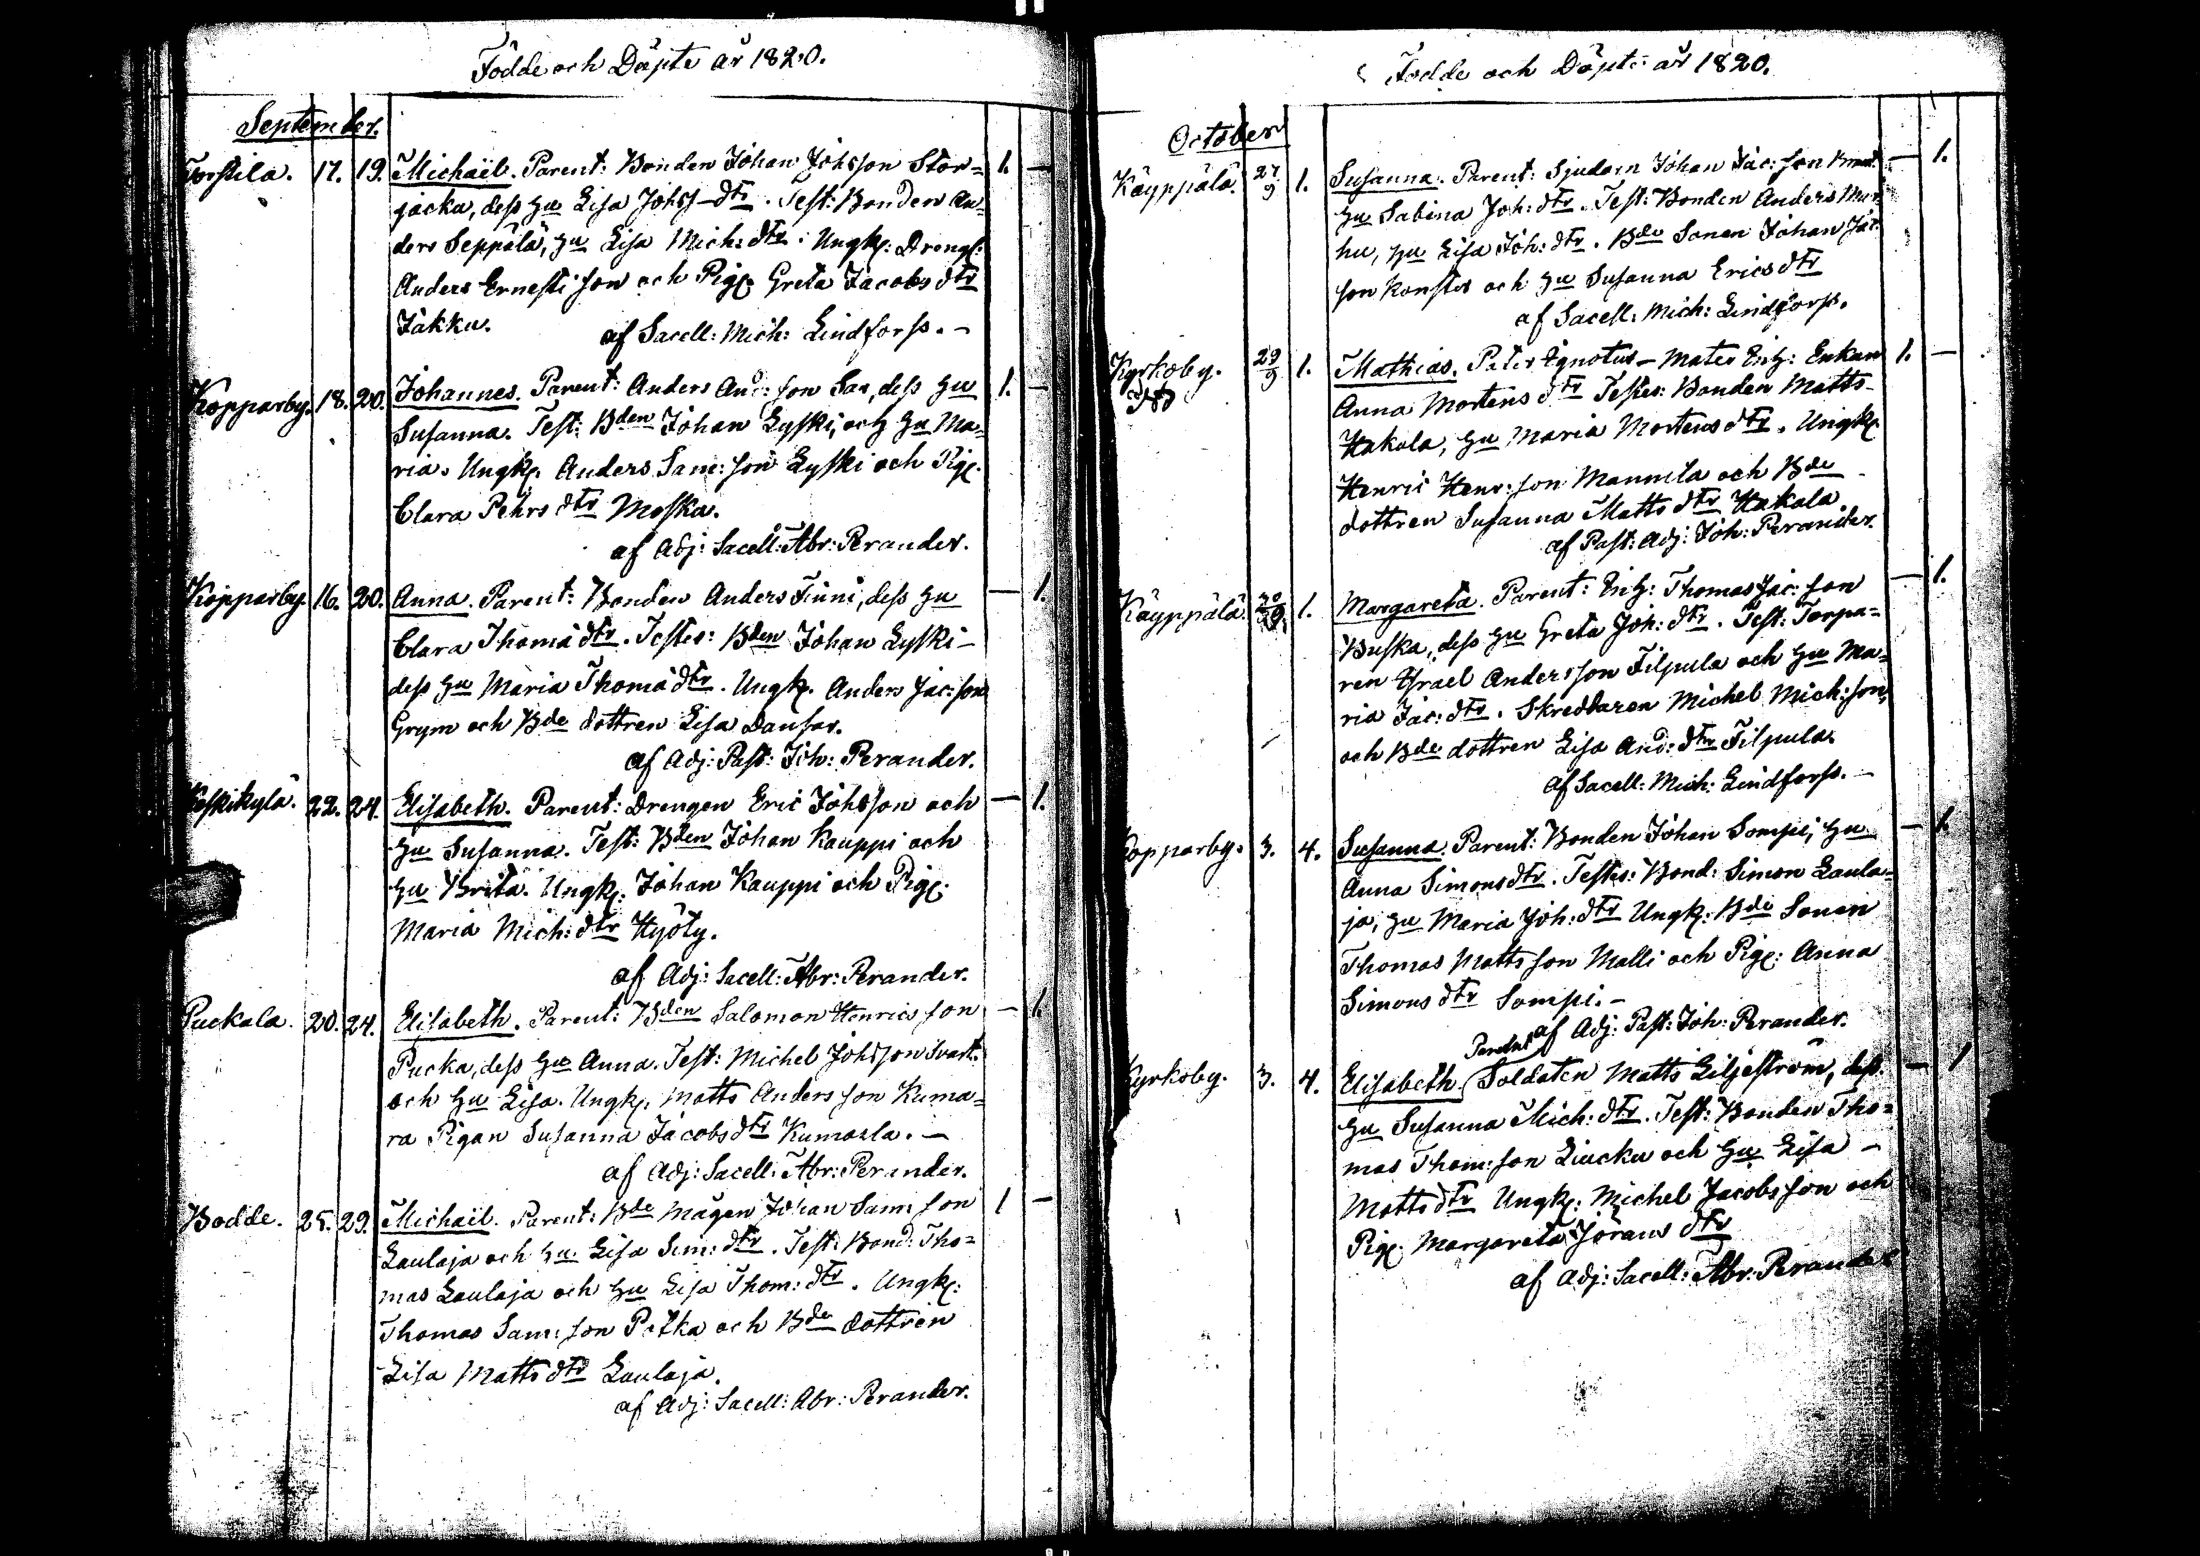 Födde och Döpte år 1820.
September.
Torstila. 17. 19. Michaël. Parent: Bonden Johan Johsson Stor= 1. —
jacka, dess Hu Lisa Johss-dtr. Test: Bonden An=
ders Seppälä, Hu Lisa Mich: dtr. Ungk: Drengs:
Anders Ernesti son och Pig: Greta Jacobs dtr
Jäkku. af Sacell: Mich: Lindforss. —
Kopparby. 18. 20. Johannes. Parent: Anders And: son Sax, dess Hu 1. —
Susanna. Test: Bden Johan Lyski, och Hu Ma=
ria. Ungk. Anders Sam: son Lyski och Pig:
Clara Pehrs dtr Moska.
af Adj: Sacell: Abr: Perander.
Kopparby. 16. 20. Anna. Parent: Bonden Anders Finni, dess Hu — 1.
Clara Thomä dtr. Testes: Bden Johan Lyski —
dess Hu Maria Thomä dtr. Ungk. Anders Jac: son
Grym och Bde dottren Lisa Dansar.
af Adj: Past: Joh: Perander.
Keskikylä. 22. 24. Elisabeth. Parent: Drengen Eric Johsson och — 1.
Hu Susanna. Test: Bden Johan Kauppi och
Hu Brita. Ungk: Johan Kauppi och Pig:
Maria Mich: dtr Hyöty.
af Adj: Sacell: Abr: Perander.
Puckala. 20. 24. Elisabeth. Parent: Bden Salomon Henrics son — 1.
Pucka, dess Hu Anna. Test: Michel Johsson Svart:
och Hu Lisa. Ungk. Matts Anders son Kuma=
ra Pigan Susanna Jacobs dtr Kumarla. —
af Adj: Sacell: Abr: Perander.
Bodde. 25. 29. Michaël. Parent: Bde mågen Johan Sam: son 1 —
Laulaja och Hu Lisa Sim: dtr. Test: Bond: Tho=
mas Laulaja och Hu Lisa Thom: dtr. Ungk:
Thomas Sam: son Pitka och Bde dottren
Lisa Matts dtr Laulaja.
af Adj: Sacell: Abr: Perander.
Födde och Döpte år 1820.
October
Käyppälä. 27/9 1. Susanna. Parent: Sjudarn Johan Jac: son — 1.
Hu Sabina Joh: dtr. Test: Bonden Anders Mur=
hu, Hu Lisa Joh: dtr. Bde Sonen Johan Jac:
son Konstes och Hu Susanna Erics dtr
af Sacell: Mich: Lindforss.
Kyrkoby. 29/9 1. Mathias. Pater Ignotus — Mater Enh: Enkan 1. —
Anna Mortens dtr Testes: Bonden Matts
Hakola, Hu Maria Mortens dtr. Ungk:
Henric Henr: son Mannila och Bde
dottren Susanna Matts dtr Hakola
af Past: Adj: Joh: Perander.
Käyppälä. 30/9 1. Margareta. Parent: Enh: Thomas Jac: son — 1.
Buska, dess Hu Greta Joh: dtr. Test: Torpa=
ren Israel Andersson Filpula och Hu Ma=
ria Jac: dtr. Skreddaren Michel Mich: son,
och Bde dottren Lisa And: dtr Filpula.
af Sacell: Mich: Lindforss. —
Kopparby. 3. 4. Susanna. Parent: Bonden Johan Sompi, Hu — 1.
Anna Simons dtr. Testes: Bond: Simon Laula=
ja, Hu Maria Joh: dtr Ungk: Bde Sonen
Thomas Matts son Malli och Pig: Anna
Simons dtr Sompi. —
af Adj: Past: Joh: Perander.
Parentes
Kyrkoby. 3. 4. Elisabeth. Soldaten Matts Liljeström, dess — 1
Hu Susanna Mich: dtr. Test: Bonden Tho=
mas Thom: son Liucku och Hu Lisa —
Matts dtr Ungk: Michel Jacobs son och
Pig: Margareta Jörans dtr
af Adj: Sacell: Abr: Perander